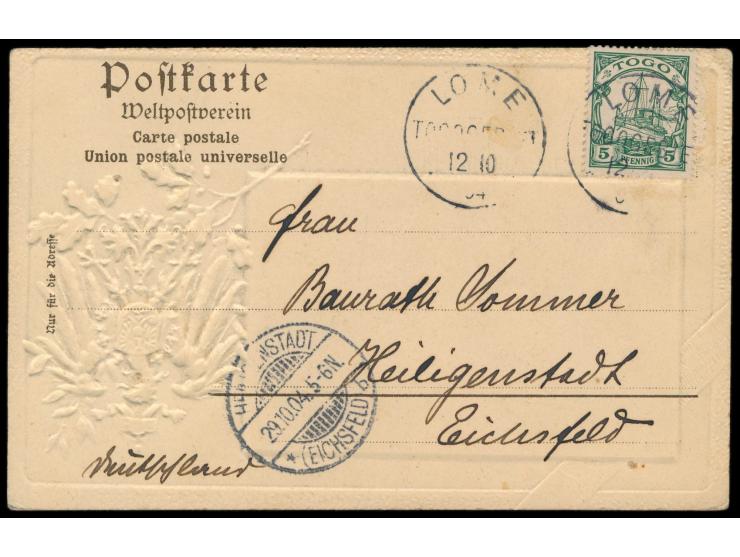 Postkarte
Weltpostverein
Carte postale
Union postale universelle
Nur für die Adresse
LOME
TOGOGEBIET
12 10
04
TOGO
5 PFENNIG 5
LOME
12
Frau
Baurath Sommer
Heiligenstadt
Eichsfeld
Deutschland
HEILIGENSTADT
29.10.04. 5-6N.
* (EICHSFELD) b